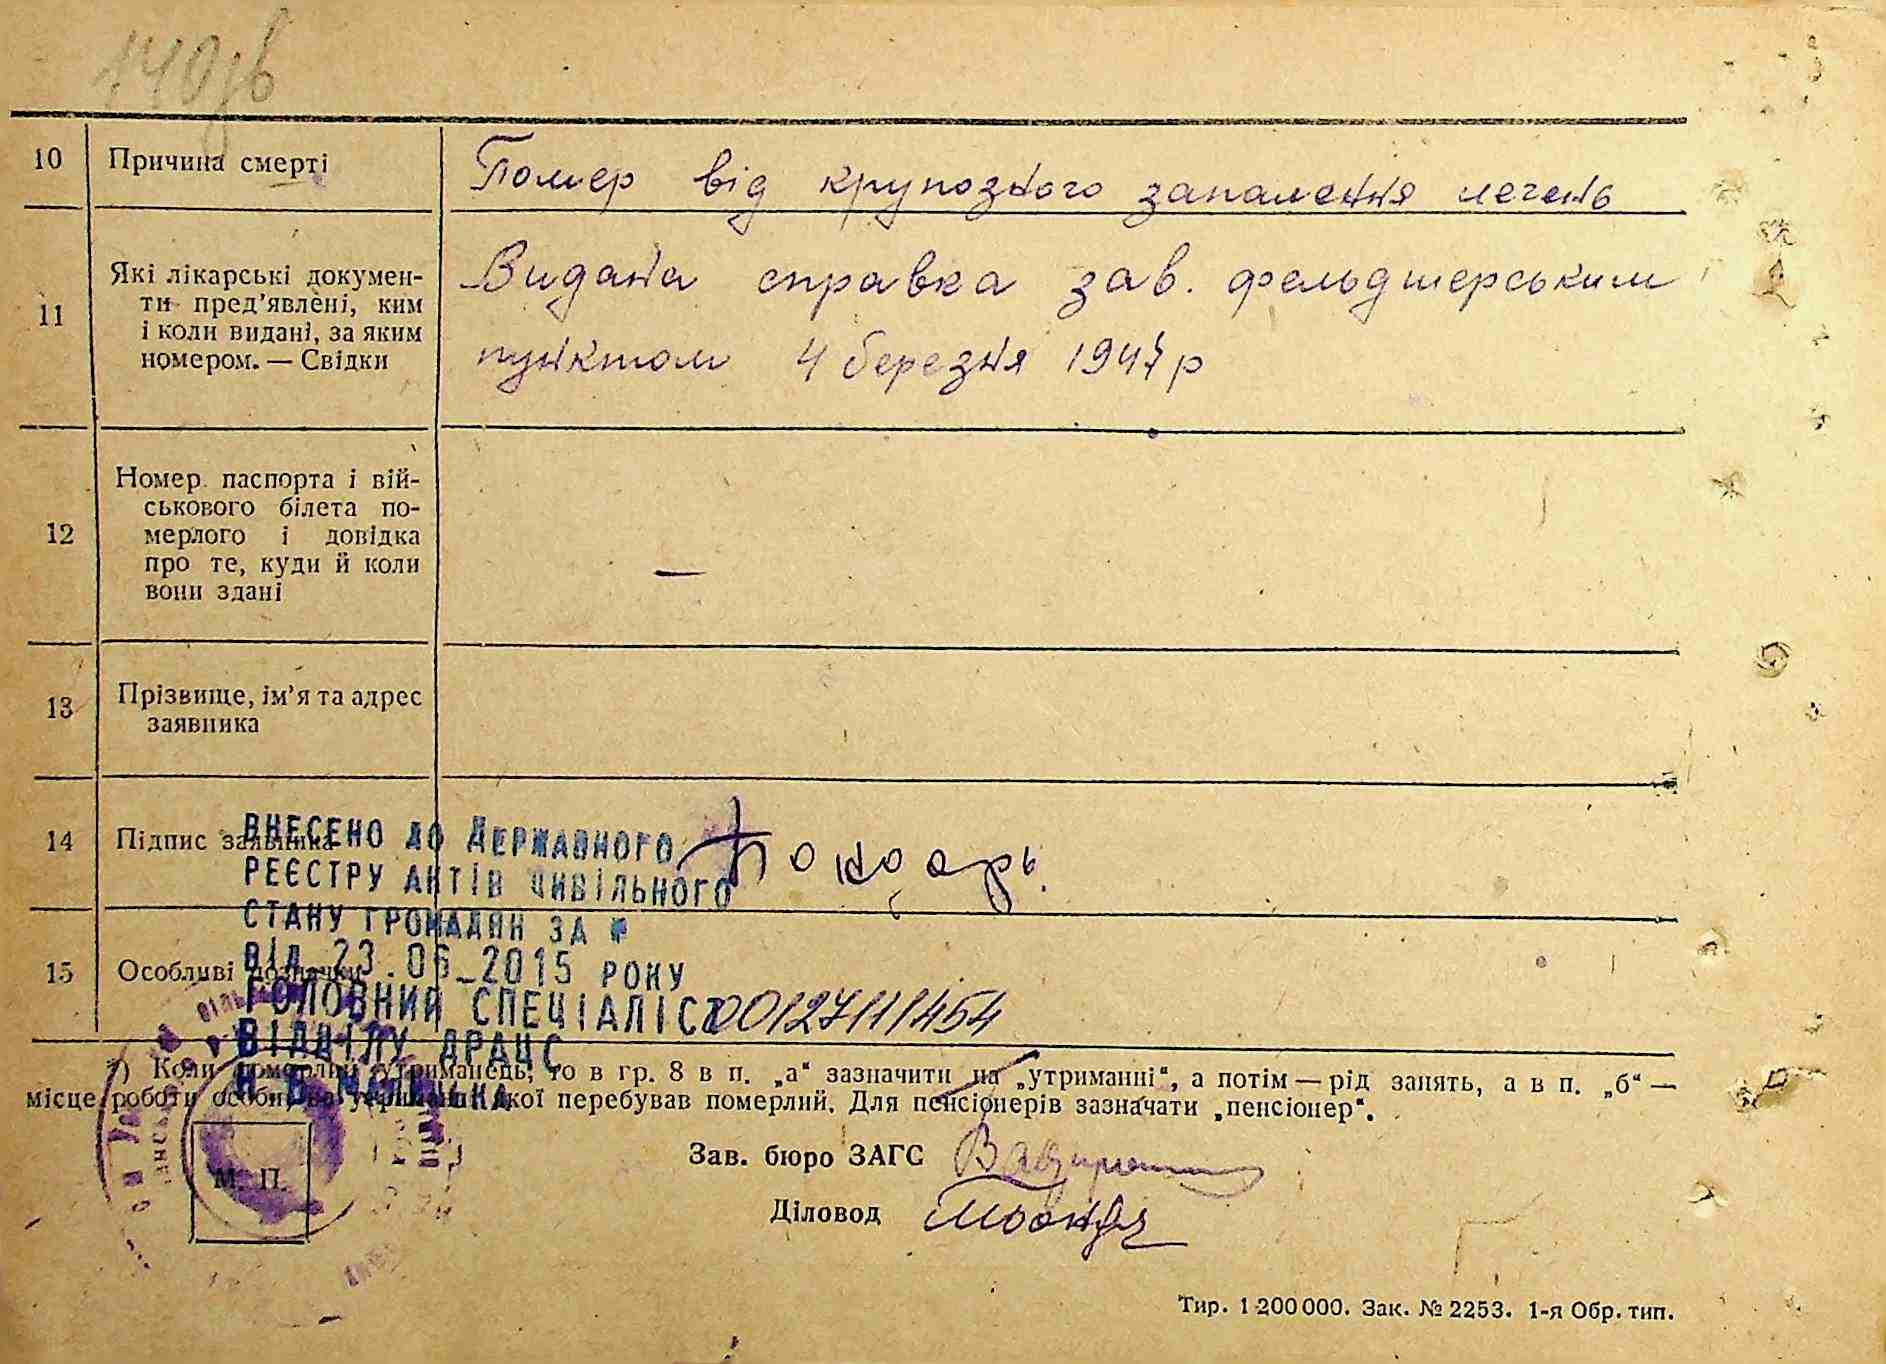 10 Причина смерті Помер від крупозного запалення легень
11 Які лікарські докумен-
ти пред'явлені, ким
і коли видані, за яким
номером. — Свідки
Видана справка зав. фельдшерським
пунктом 4 березня 1947 р
12 Номер паспорта і вій-
ськового білета по-
мерлого і довідка
про те, куди й коли
вони здані
—
13 Прізвище, ім'я та адрес
заявника
14 Підпис заявника
ВНЕСЕНО ДО ДЕРЖАВНОГО
РЕЄСТРУ АКТІВ ЦИВІЛЬНОГО
СТАНУ ГРОМАДЯН ЗА №
ВІД 23.06.2015 РОКУ
ГОЛОВНИЙ СПЕЦІАЛІСТ 00127111454
ВІДДІЛУ ДРАЦС
15 Особливі позначки
*) Коли померлий утриманець, то в гр. 8 в п. „а“ зазначити на „утриманні“, а потім — рід занять, а в п. „б“ —
місце роботи особи, на утриманні якої перебував померлий. Для пенсіонерів зазначати „пенсіонер“.
М. П.
Зав. бюро ЗАГС
Діловод
Тир. 1 200 000. Зак. № 2253. 1-я Обр. тип.